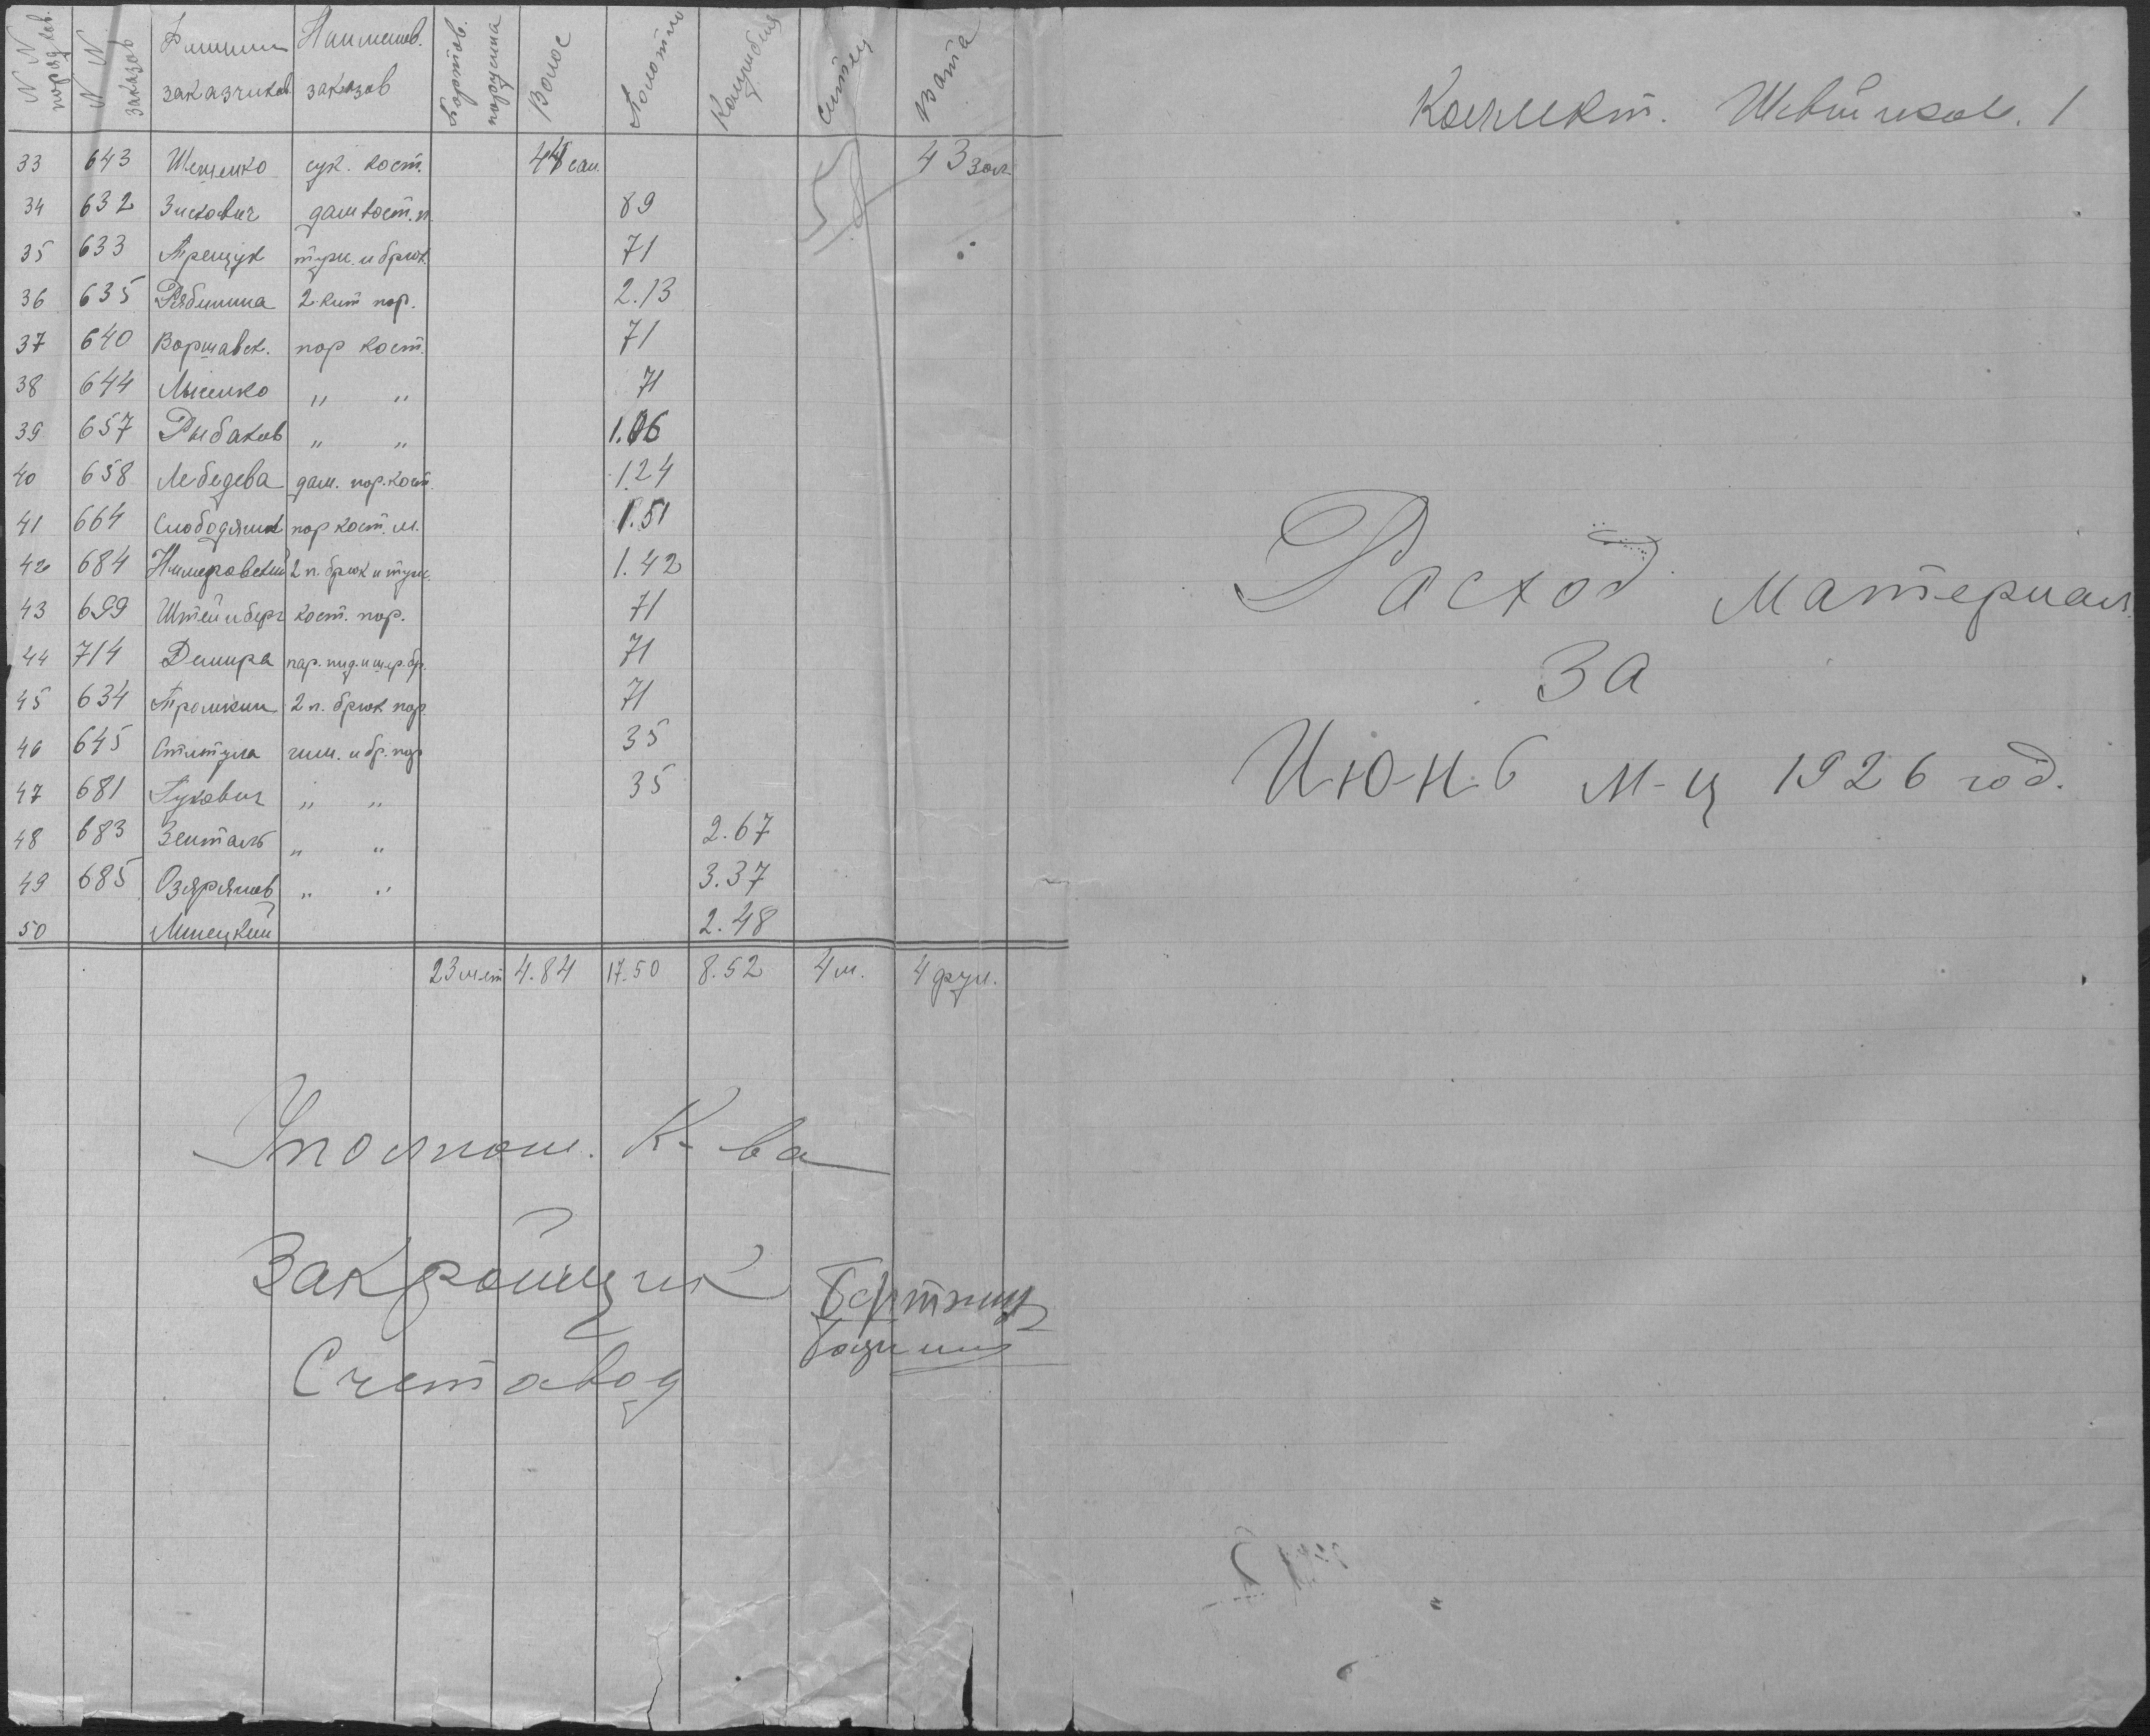 N N порядков. N N заказов Фамилии заказчиков Наименов. заказов Бортов. парусина Волос Полотно Коленкор Ситец Вата
33 643 сук. кост. 44 сан. 43 зол.
34 632 Зискович дам кост. п. 89
35 633 Трещук тужн. и брюк. 71
36 635 Рябинина 2 кит пар. 2.13
37 640 Воршавск. пор кост. 71
38 644 Лысенко " " 71
39 657 Рыбаков " " 1.06
40 658 Лебедева дам. пор. кост. 1.24
41 664 Слободяник пор кост. м. 1.51
42 684 Нимеровский 2 п. брюк и тужн. 1.42
43 699 Штейнберг кост. пор. 71
44 714 пар. пид. и шер. бр. 71
45 634 2 п. брюк пор. 71
46 645 гим. и бр. пор 35
47 681 Гукович " " 35
48 683 " " 2.67
49 685 " " 3.37
50 2.48
23 4.84 17.50 8.52 4 м. 4 фун.
Уполном. К-ва
Закройщик
Счетовод
Коллект. Швейников. 1
Расход материал.
За
Июнь м-ц 1926 год.